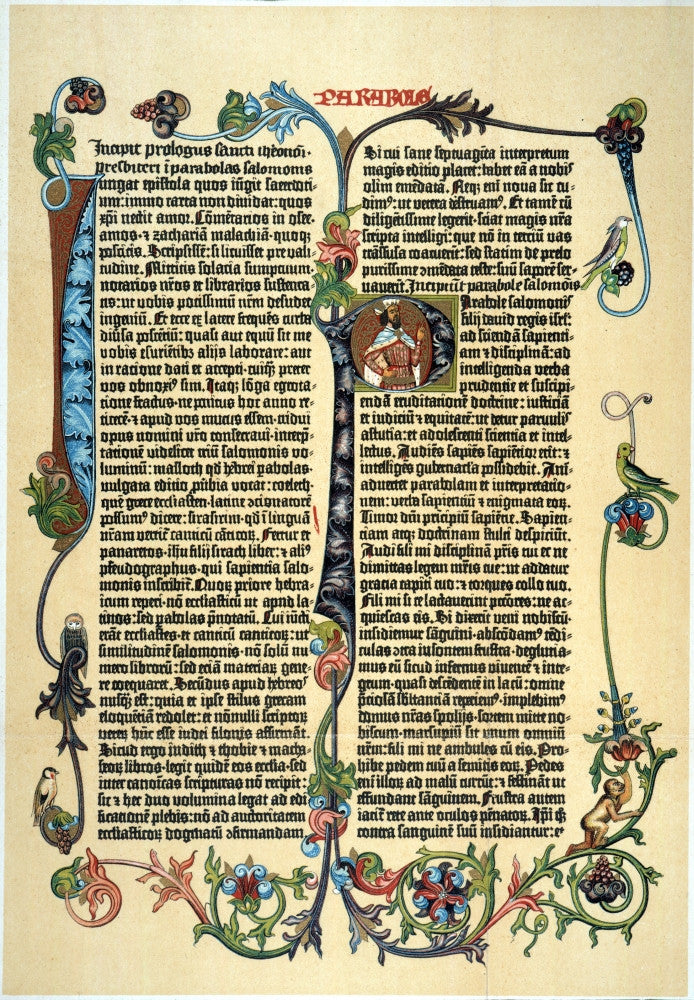 PARABOLE
Incipit prologus sancti iheronimi
presbiteri ī parabolas salomonis
Iungat epistola quos iūgit sacerdoti-
um: immo carta non dividat: quos
xp̄i nectit amor. Cōmētarios in osee.
amos. ⁊ zachariā malachiā. quoqȝ
poscitis. Scripsissē: si licuisset pre vali-
tudine. Mittitis solacia sumptuum.
notarios nr̄os et librarios sustenta-
tis: ut vobis potissimū nr̄m desudet
ingeniū. Et ecce ex latere frequēs turba
diversa poscētiū: quasi aut equū sit me
vobis esurientibȝ alijs laborare: aut
in racione dati et accepti. cuiqȝ preter
vos obnoxiꝰ sim. Itaqȝ lōga egrota-
tione fractus. ne penitus hoc anno re-
ticerē ⁊ apud vos mutus essem. tridui
opus nomini vr̄o consecravi. interp̄-
tationē videlicet triū salomonis vo-
luminū: masloth qd̄ hebrei pabolas.
vulgata editio pverbia vocat: coeleth.
quē grece ecclesiasten. latine ↄcionatorē
possumꝰ dicere: sirasirim. qd̄ ī linguā
nr̄am vertit̄ canticū cāticoꝝ. Fertur et
panaretos. ihū filij sirach liber: ⁊ aliꝰ
pseudographus. qui sapientia salo-
monis inscribit̄. Quoꝝ priore hebra-
icum reperi. nō ecclesiasticū ut apud la-
tinos: sed pabolas p̄notatū. Cui iūcti
erāt ecclesiastes. et canticū canticoꝝ: ut
similitudinē salomonis. nō solū nu-
mero librorū: sed etiā materiaꝝ gene-
re coequaret. Secūdus apud hebreos
nusqȝ est: quia et ipse stilus grecam
eloquētiā redolet: et nōnulli scriptoꝝ
veterū hūc esse iudei filonis affirmāt.
Sicut ergo iudith ⁊ thobie ⁊ macha-
beoꝝ libros. legit quidē eos ecclesia. sed
inter canōicas scripturas nō recipit:
sic ⁊ hec duo volumina legat ad edi-
ficationē plebis: nō ad auctoritatem
ecclesiasticoꝝ dogmatū ↄfirmandam.
Si cui sane septuagīta interpretum
magis editio placet: habet eā a nobis
olim emēdatā. Neqȝ enī nova sic cu-
dimꝰ: ut vetera destruamꝰ. Et tamē cū
diligētissime legerit. sciat magis nr̄a
scripta intelligi: que nō in tertiū vas
trāsfusa coacuerit: sed statim de prelo
purissime ↄmēdata teste: suū saporē ser-
vaverit. Incipiūt parabole salomōis
Parabole salomonis
filij david regis isr̄l:
ad sciendā sapienti-
am ⁊ disciplinā: ad
intelligenda verba
prudentie et suscipi-
endā eruditationē doctrine: iusticiā
et iudiciū ⁊ equitatē: ut detur parvulis
astutia: et adolescenti scientia et intel-
lectus. Audiēs sapiēs sapientior erit: ⁊
intelligēs gubernacla possidebit. Ani-
advertet parabolam et interpretatio-
nem: verba sapientiū ⁊ enigmata eoꝝ.
Timor dn̄i principiū sapiētie. Sapien-
tiam atqȝ doctrinam stulti despiciūt.
Audi fili mi disciplinā pr̄is tui et ne
dimittas legem mr̄is tue: ut addatur
gracia capiti tuo: ⁊ torques collo tuo.
Fili mi si te lactaverint pctōres: ne ac-
quiescas eis. Si dixerīt veni nobiscū:
insidiemur sāguini. abscōdamꝰ tēdi-
culas ↄtra isontem frustra. deglutia-
mus eū sicud infernus viventē ⁊ inte-
grum. quasi descēdentē in lacū: omnē
pciosā sb̄stantiā reperiemꝰ. implebimꝰ
domus nr̄as spolijs. sortem mitte no-
biscum. marsupiū sit unum omniū
nr̄m: fili mi ne ambules cū eis. Pro-
hibe pedem tuū a semitis eoꝝ. Pedes
enī illoꝝ ad malū currūt: ⁊ festināt ut
effundant sāguinem. Frustra autem
iacit̄ rete ante oculos pēnatoꝝ. Ip̄i qȝ
contra sanguinē suū insidiantur: et